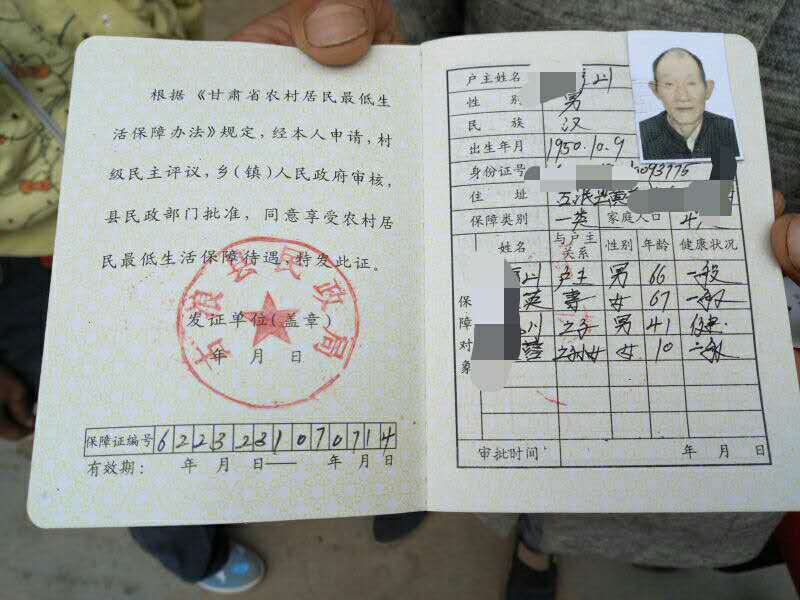 根据《甘肃省农村居民最低生
活保障办法》规定，经本人申请，村
级民主评议，乡（镇）人民政府审核，
县民政部门批准，同意享受农村居
民最低生活保障待遇，特发此证。
古浪县民政局
发证单位（盖章）
年 月 日
保障证编号 6223231070714
有效期： 年 月 日—— 年 月 日
户主姓名
性 别 男
民 族 汉
出生年月 1950.10.9
身份证号 093775
住 址
保障类别 一类 家庭人口 4人
保障对象
姓名 与户主关系 性别 年龄 健康状况
户主 男 66 一般
英 妻 女 67 一般
之子 男 41 健
之孙女 女 10 一般
审批时间 年 月 日